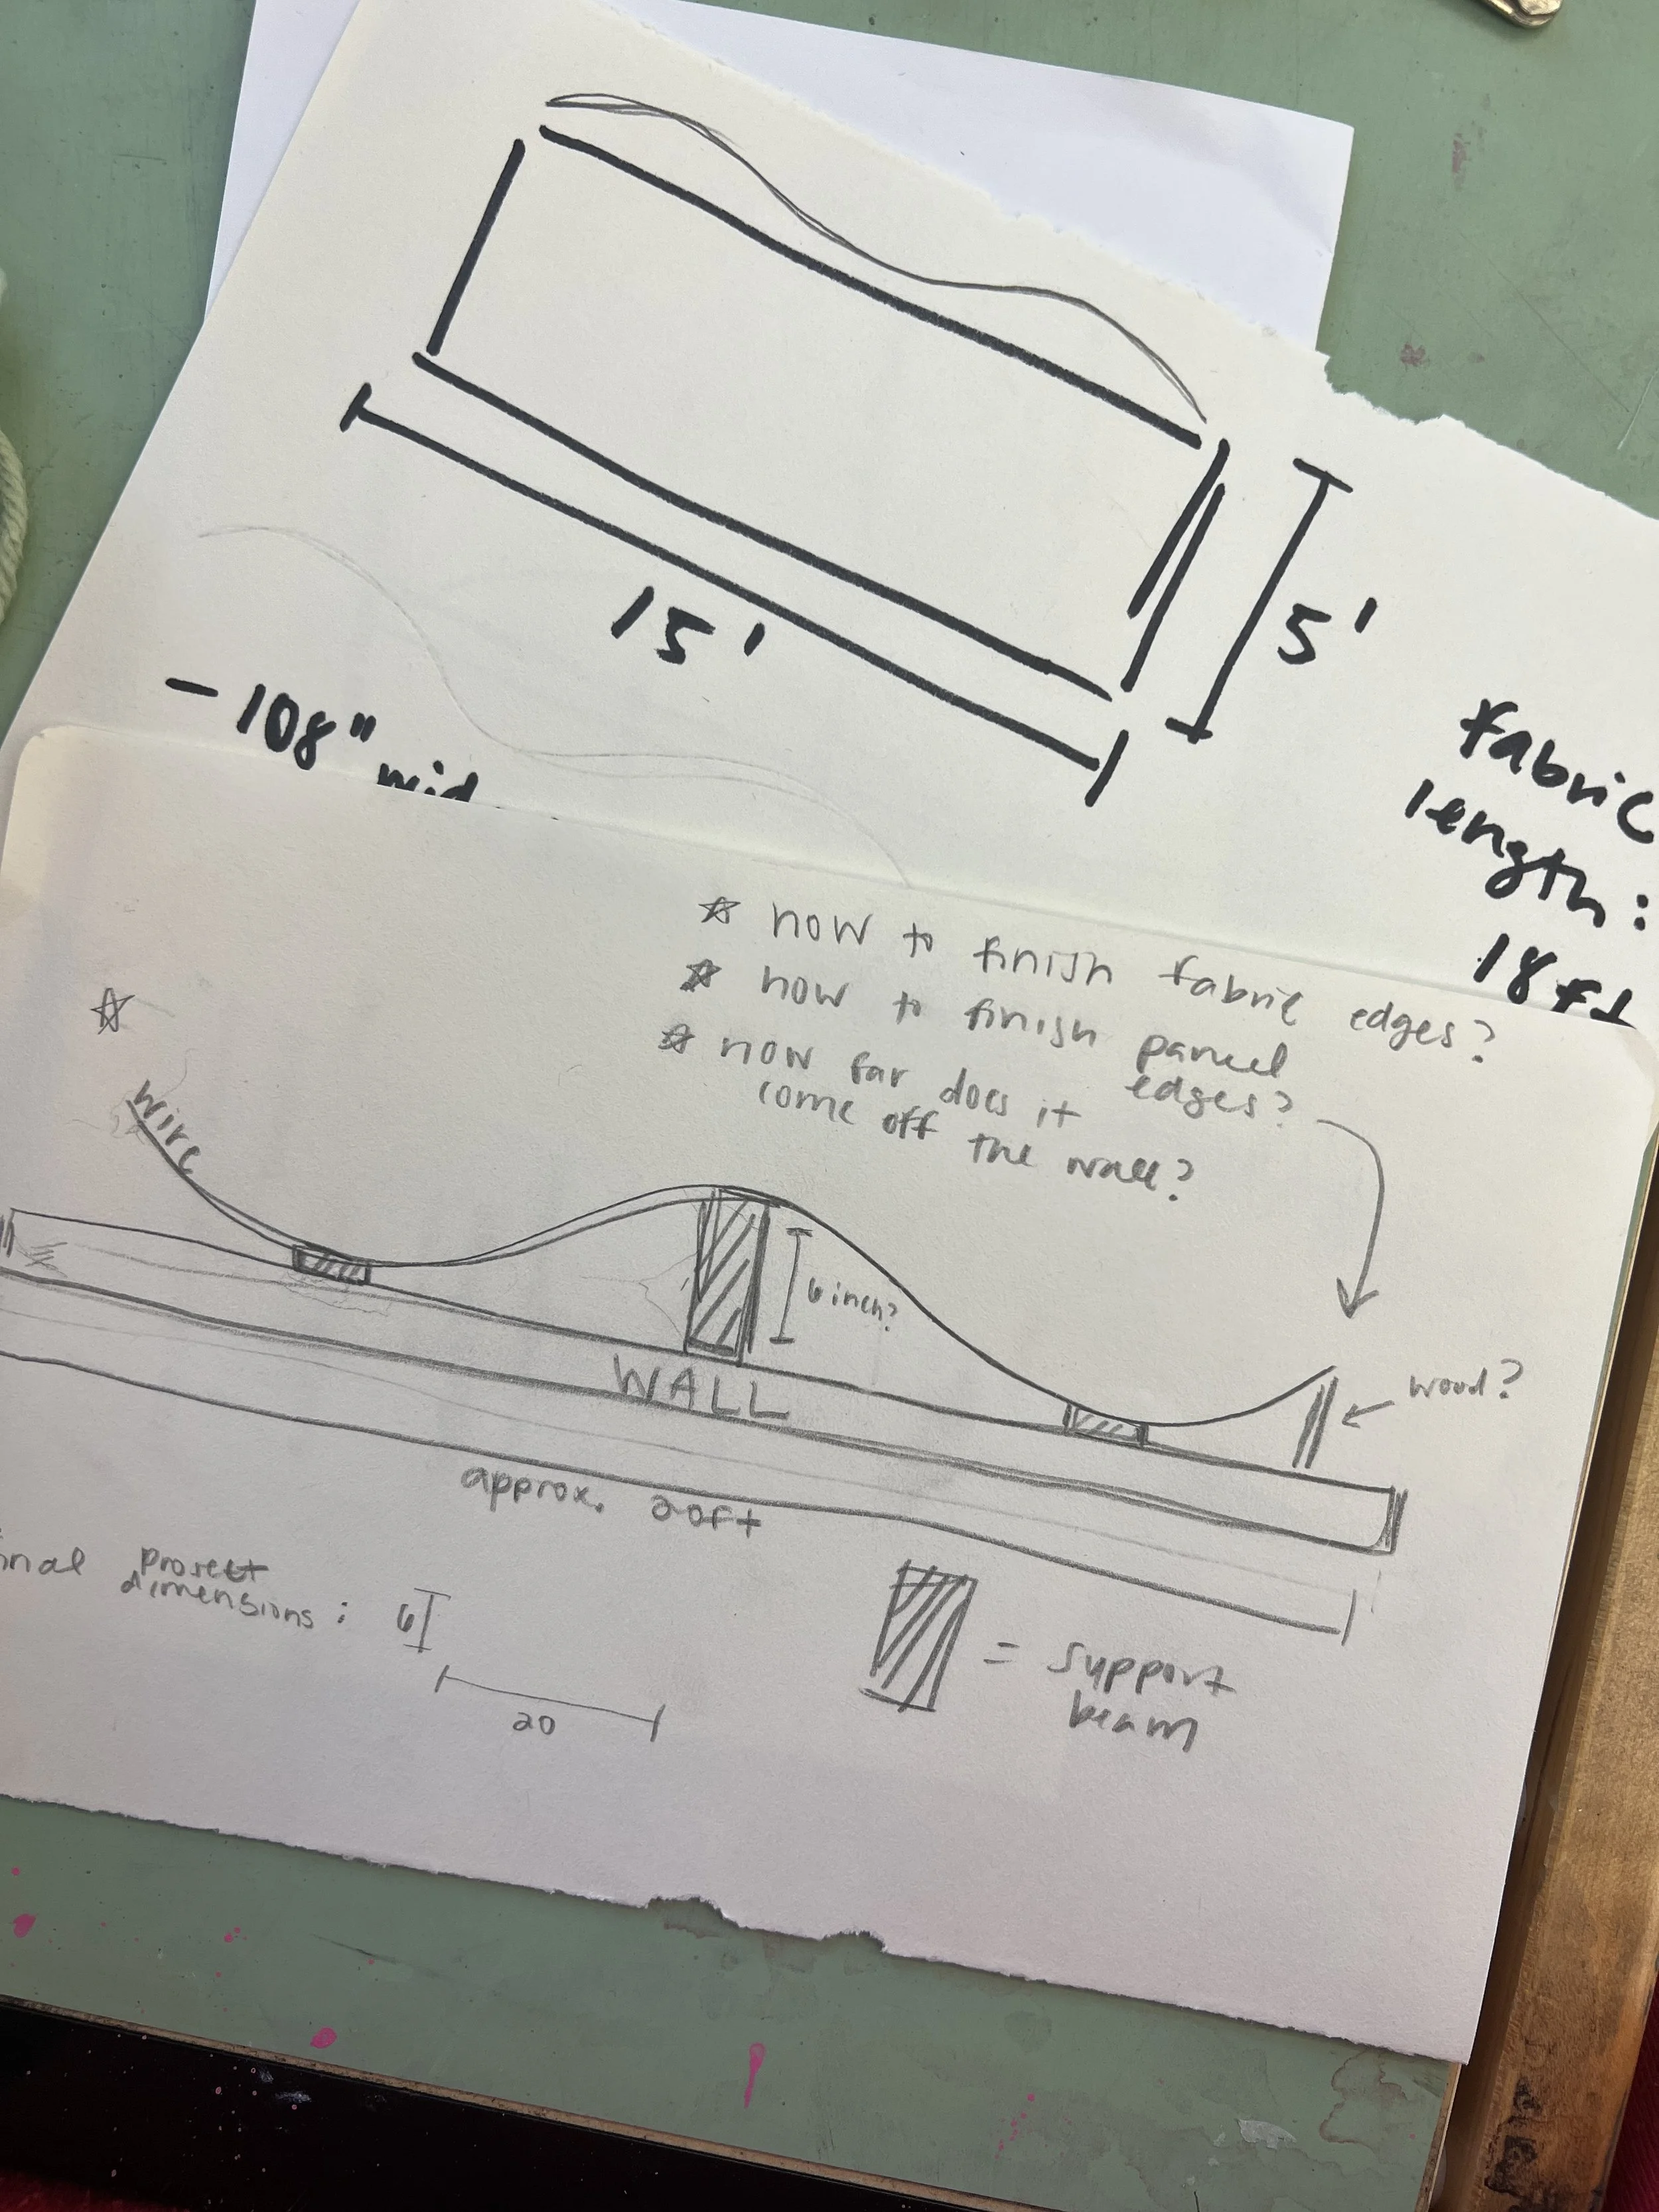 15'
5'
- 108"
fabric
length:
18 ft
☆ how to finish fabric edges?
☆ how to finish panel
edges?
☆ how far does it
come off the wall?
☆
wire
6 inch?
WALL
wood?
approx. 20ft
project
dimensions: 6
20
= support
beam